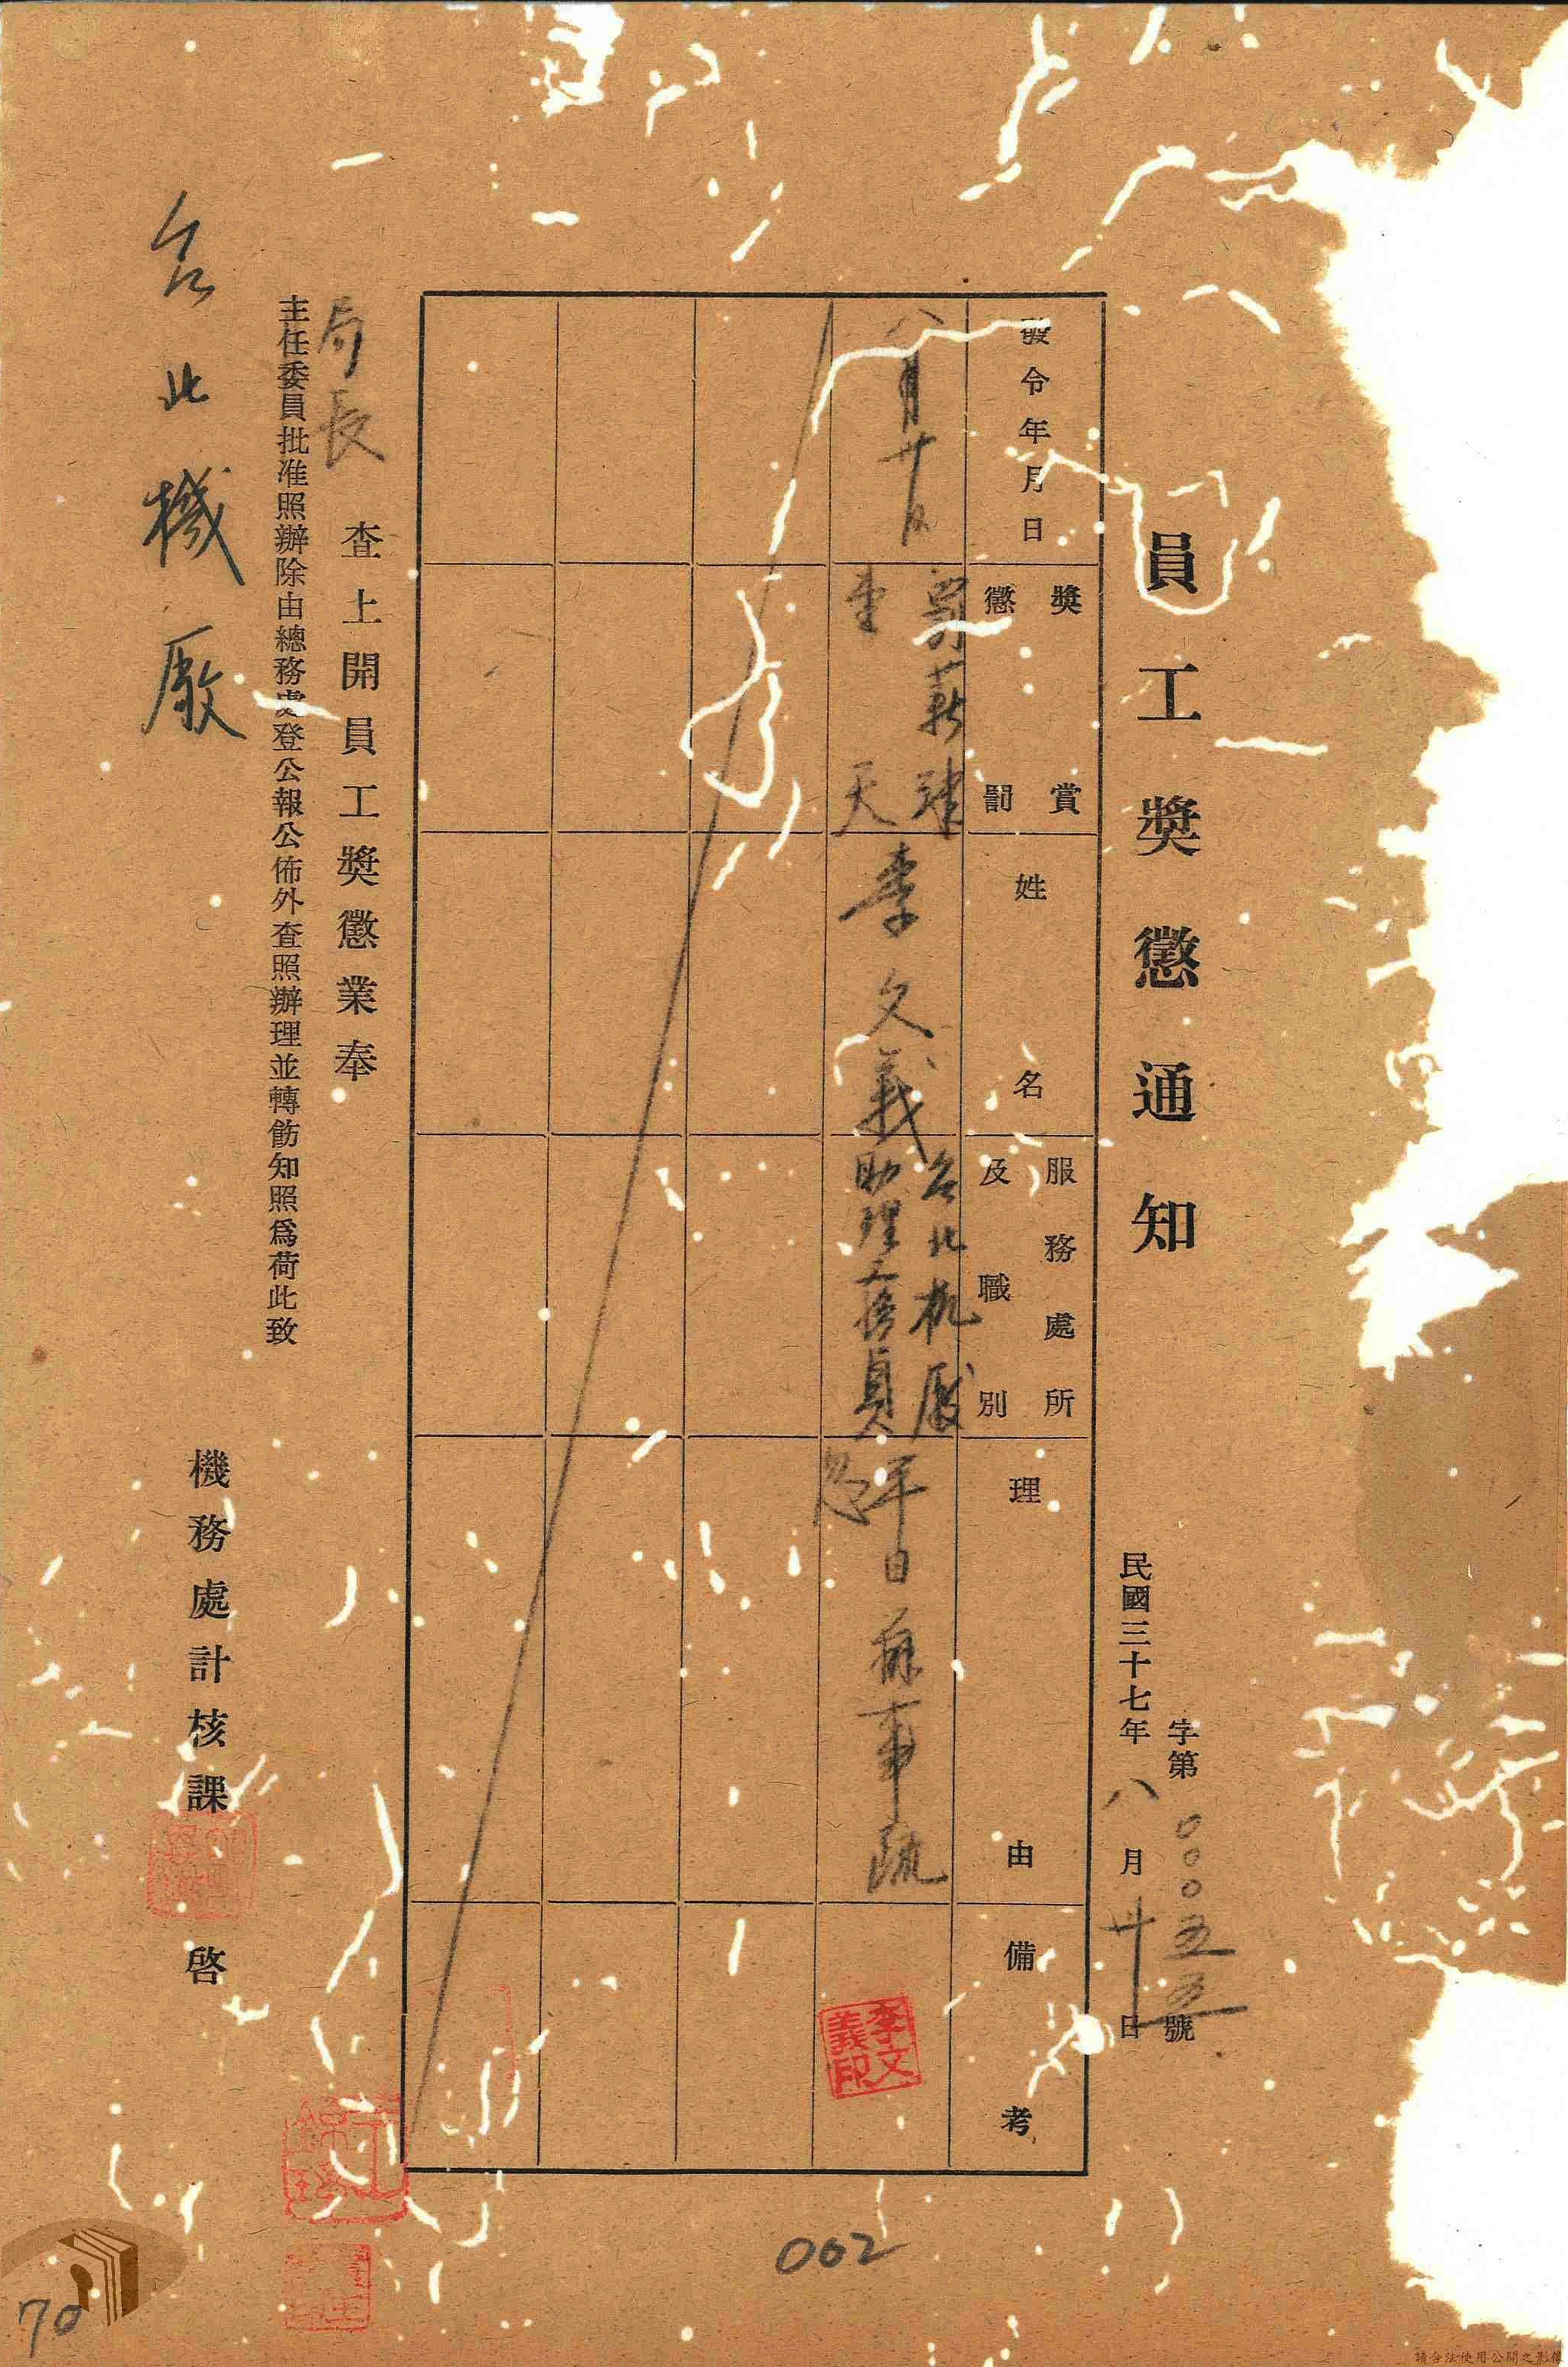 員工獎懲通知
字第〇〇〇五五號
民國三十七年八月廿日
發令年月日
獎賞
懲罰
姓名
服務處所
及職別
理由
備考
八月廿日
罰薪津
壹天
李文義
台北机厰
助理工務員
平日辦事疏
忽
李文義印
局長
查上開員工獎懲業奉
主任委員批准照辦除由總務處登公報公佈外查照辦理並轉飭知照爲荷此致
台北機厰
機務處計核課 啓
002
70
請合法使用公開之影像